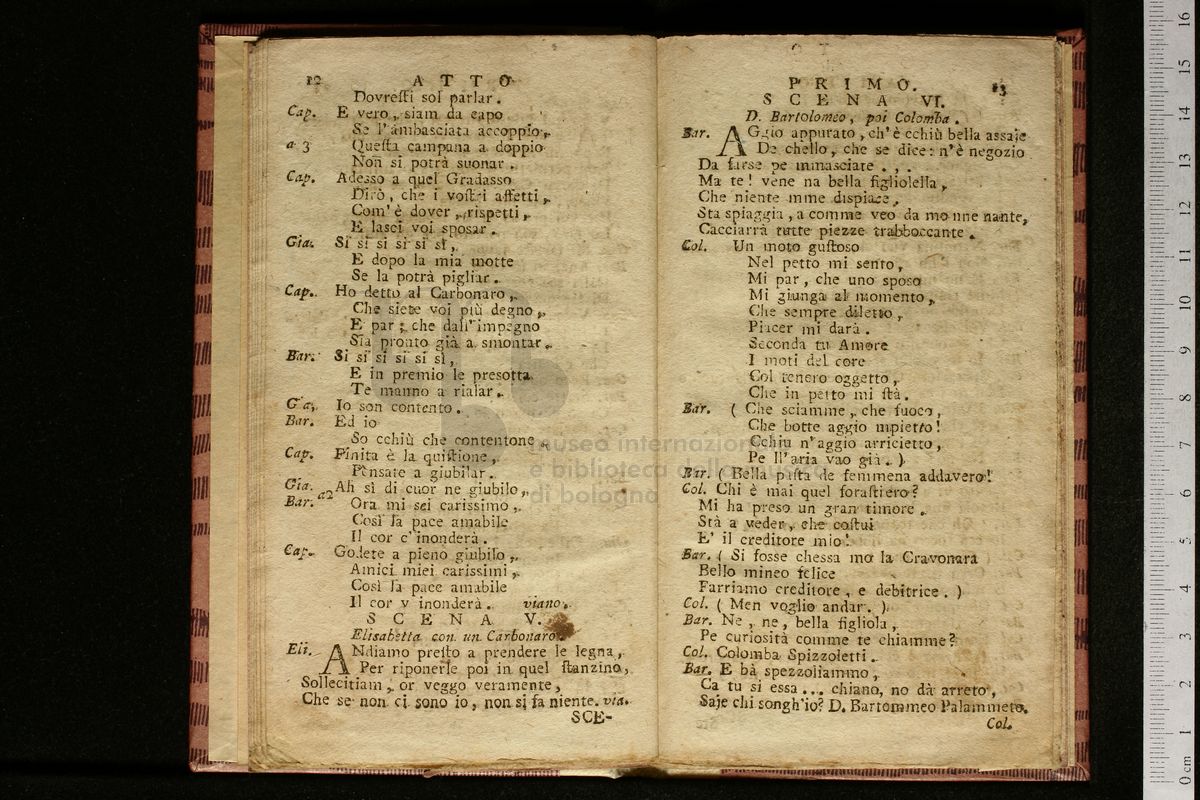 12 ATTO
Dovresti sol parlar.
Cap. E vero, siam da capo
Se l'ambasciata accoppio,
a 3 Questa campana a doppio
Non si potrà suonar.
Cap. Adesso a quel Gradasso
Dirò, che i vostri affetti,
Com' è dover, rispetti,
E lasci voi sposar.
Gia. Sì sì sì sì sì sì,
E dopo la mia motte
Se la potrà pigliar.
Cap. Ho detto al Carbonaro,
Che siete voi più degno,
E par, che dall' impegno
Sia pronto già a smontar.
Bar. Si si si si si sì,
E in premio le presotta
Te manno a rialar.
Gia. Io son contento.
Bar. Ed io
So cchiù che contentone.
Cap. Finita è la quistione,
Pensate a giubilar.
Gia. a2 Ah sì di cuor ne giubilo,
Bar. Ora mi sei carissimo,
Così la pace amabile
Il cor c'inonderà.
Cap. Godete a pieno giubilo,
Amici miei carissimi,
Così la pace amabile
Il cor v inonderà. viano.
SCENA V.
Elisabetta con un Carbonaro.
Eli. ANdiamo presto a prendere le legna,
Per riponerle poi in quel stanzino,
Sollecitiam, or veggo veramente,
Che se non ci sono io, non si fa niente. via.
SCE-
PRIMO. 13
SCENA VI.
D. Bartolomeo, poi Colomba.
Bar. AGgio appurato, ch'è cchiù bella assaje
De chello, che se dice: n'è negozio
Da farse pe minasciate...
Ma te! vene na bella figliolella,
Che niente mme dispiace,
Sta spiaggia, a comme veo da mo nne nante,
Cacciarrà tutte piezze trabboccante.
Col. Un moto gustoso
Nel petto mi sento,
Mi par, che uno sposo
Mi giunga al momento,
Che sempre diletto,
Piacer mi darà.
Seconda tu Amore
I moti del core
Col tenero oggetto,
Che in petto mi stà.
Bar. (Che sciamme, che fuoco,
Che botte aggio mpietto!
Cchiu n'aggio arricietto,
Pe ll'aria vao già.)
Bar. (Bella pasta de femmena addavero!
Col. Chi è mai quel forastiero?
Mi ha preso un gran timore.
Stà a veder, che costui
E' il creditore mio!
Bar. (Si fosse chessa mo la Cravonara
Bello mineo felice
Farriamo creditore, e debitrice.)
Col. (Men voglio andar.)
Bar. Ne, ne, bella figliola,
Pe curiosità comme te chiamme?
Col. Colomba Spizzoletti.
Bar. E bà spezzoliammo,
Ca tu si essa... chiano, no dà arreto,
Saje chi songh'io? D. Bartommeo Palammeto.
Col.
museo internazion
e biblioteca della musica
di bologna
0 cm 1 2 3 4 5 6 7 8 9 10 11 12 13 14 15 16